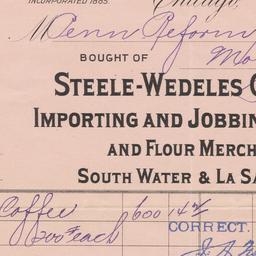 INCORPORATED 1885. Chicago,
M Penn Reform
BOUGHT OF
STEELE-WEDELES C
IMPORTING AND JOBBIN
AND FLOUR MERCH
SOUTH WATER & LA SA
Coffee 600 14½
200# each CORRECT.